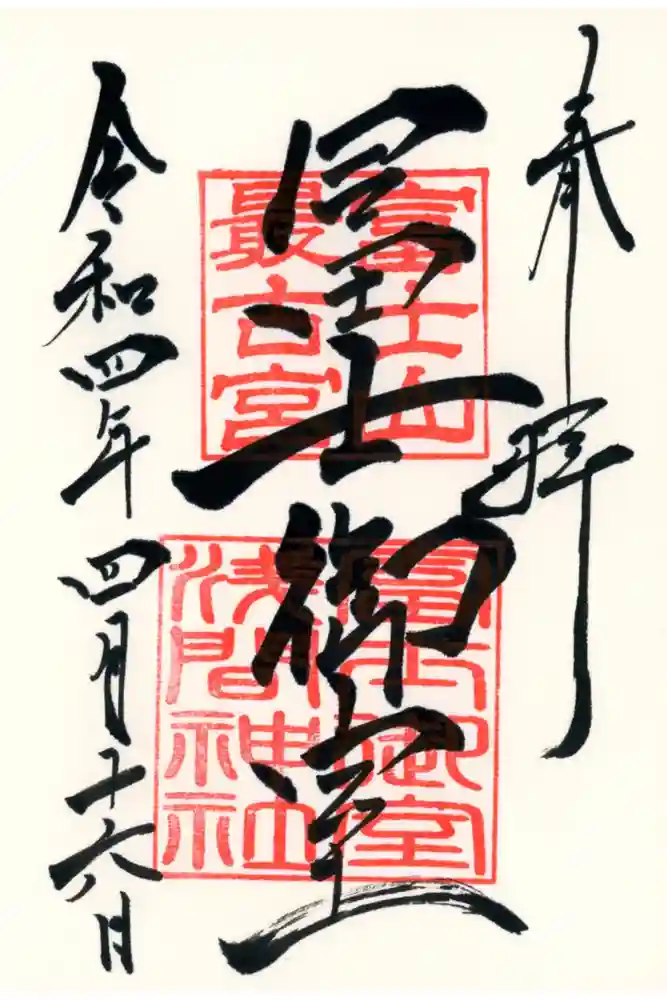 奉拝
冨士御室
令和四年四月十六日
富士山
最古宮
冨士御室
淺間神社